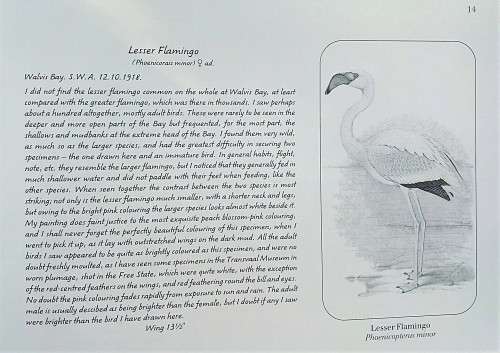 14
Lesser Flamingo
(Phoeniconais minor) ♀ ad.
Walvis Bay. S.W.A. 12.10.1918.
I did not find the lesser flamingo common on the whole at Walvis Bay, at least
compared with the greater flamingo, which was there in thousands. I saw perhaps
about a hundred altogether, mostly adult birds. These were rarely to be seen in the
deeper and more open parts of the Bay but frequented, for the most part, the
shallows and mudbanks at the extreme head of the Bay. I found them very wild,
as much so as the larger species, and had the greatest difficulty in securing two
specimens – the one drawn here and an immature bird. In general habits, flight,
note, etc. they resemble the larger flamingo, but I noticed that they generally fed in
much shallower water and did not paddle with their feet when feeding, like the
other species. When seen together the contrast between the two species is most
striking; not only is the lesser flamingo much smaller, with a shorter neck and legs,
but owing to the bright pink colouring the larger species looks almost white beside it.
My painting does faint justice to the most exquisite peach blossom-pink colouring,
and I shall never forget the perfectly beautiful colouring of this specimen, when I
went to pick it up, as it lay with outstretched wings on the dark mud. All the adult
birds I saw appeared to be quite as brightly coloured as this specimen, and were no
doubt freshly moulted, as I have seen some specimens in the Transvaal Museum in
worn plumage, shot in the Free State, which were quite white, with the exception
of the red-centred feathers on the wings, and red feathering round the bill and eyes.
No doubt the pink colouring fades rapidly from exposure to sun and rain. The adult
male is usually descibed as being brighter than the female, but I doubt if any I saw
were brighter than the bird I have drawn here.
Wing 13½"
Lesser Flamingo
Phoenicopterus minor